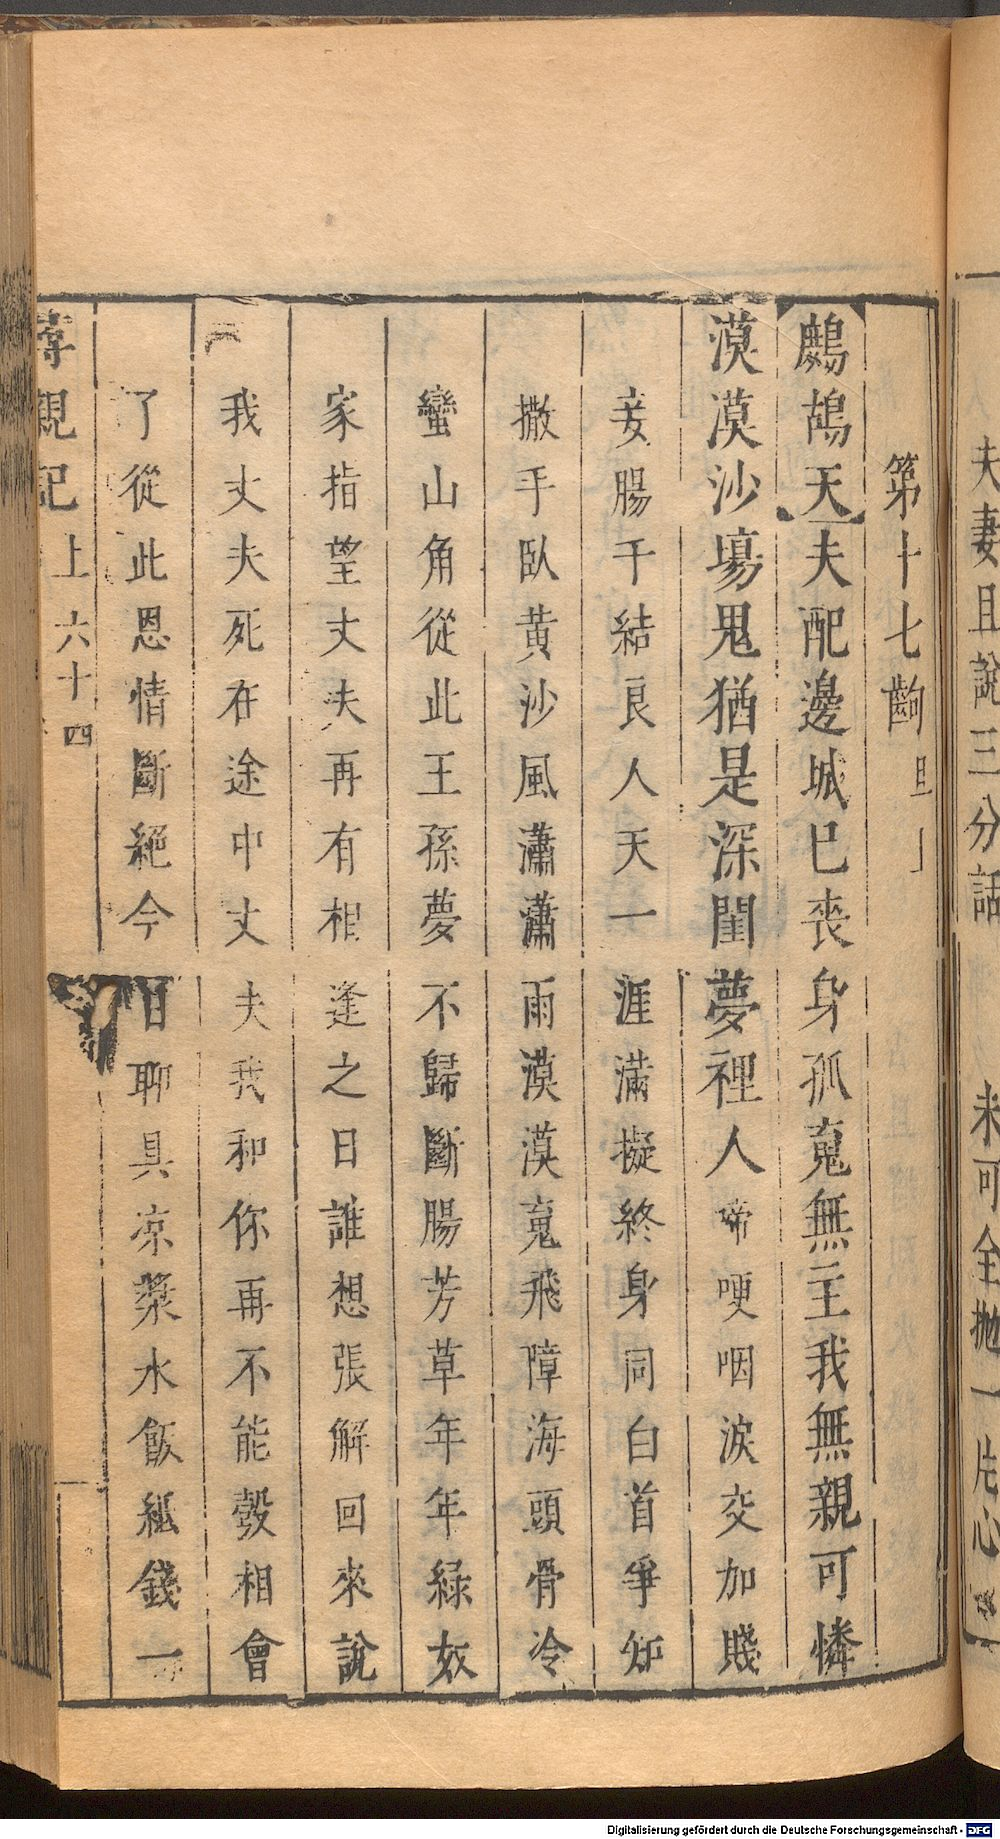 夫妻且說三分話　未可全抛一片心
第十七齣旦上
鷓鴣天夫配邊城已喪身孤䰟無主我無親可憐
漠漠沙塲鬼猶是深閨夢裡人啼哽咽淚交加賤
妾腸千結良人天一涯滿擬終身同白首爭知
撒手臥黄沙風瀟瀟雨漠漠䰟飛障海頭骨冷
蠻山角從此王孫夢不歸斷腸芳草年年綠奴
家指望丈夫再有相逢之日誰想張解回來說
我丈夫死在途中丈夫我和你再不能彀相會
了從此恩情斷絕今日聊具凉漿水飯紙錢一
尋親記　上　六十四
Digitalisierung gefördert durch die Deutsche Forschungsgemeinschaft - DFG